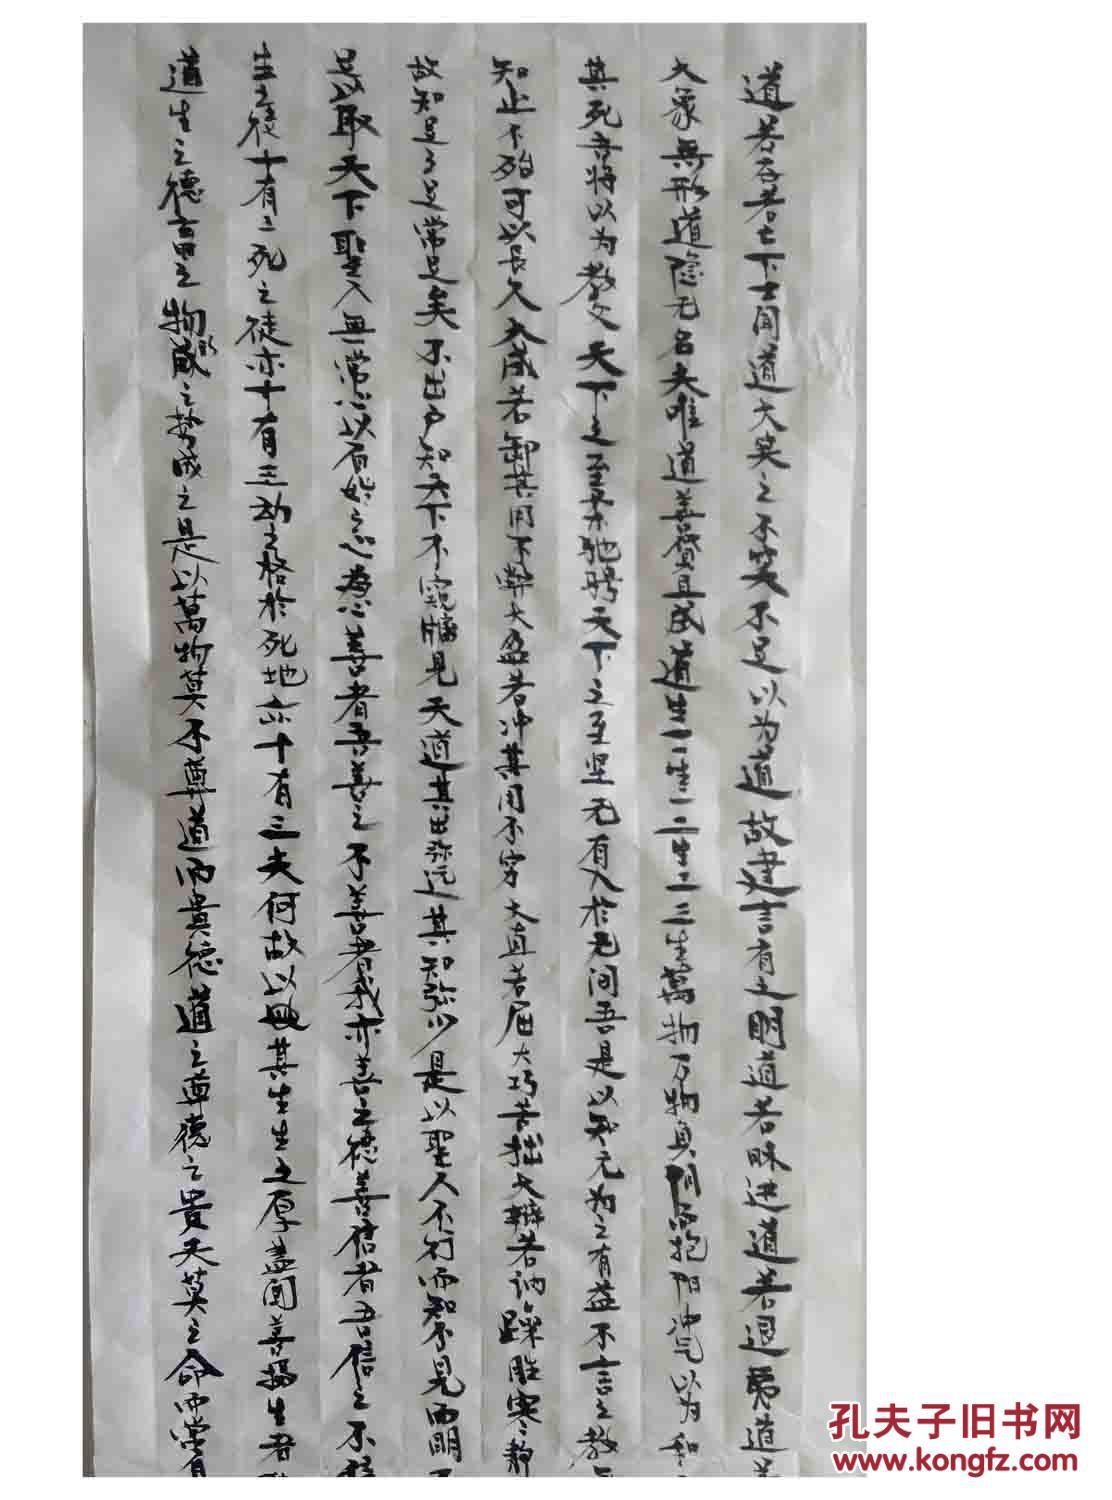 道若存若亡下士闻道大笑之不笑不足以为道故建言有之明道若昧进道若退夷道若
大象無形道隐无名夫唯道善贷且成道生一一生二二生三三生萬物万物負阴而抱阳冲气以为和
其死吾将以为教父天下之至柔驰骋天下之至坚无有入於无间吾是以知无为之有益不言之教
知止不殆可以长久大成若缺其用不弊大盈若冲其用不穷大直若屈大巧若拙大辩若讷躁胜寒静
故知足之足常足矣不出户知天下不窥牖見天道其出弥远其知弥少是以聖人不行而知不見而明不
以取天下聖人無常心以百姓之心為心善者吾善之不善者我亦善之德善信者吾信之不
生之徒十有三死之徒亦十有三动之於死地亦十有三夫何故以其生生之厚盖闻善摄生者
道生之德畜之物形之势成之是以萬物莫不尊道而貴德道之尊德之貴夫莫之命而常自
孔夫子旧书网
www.kongfz.com